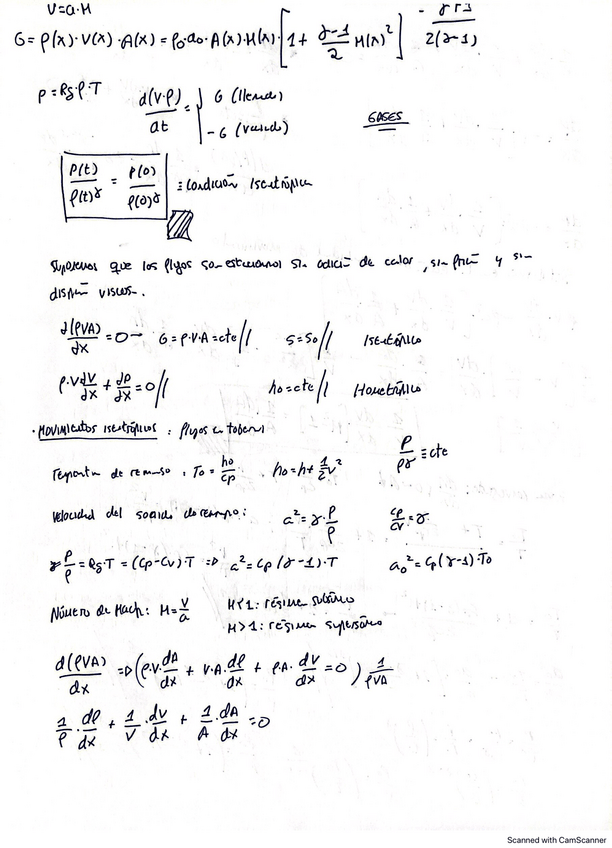 V=a·M
G= ρ(x)·V(x)·A(x)= ρ₀·a₀·A(x)·M(x)·[1+ (γ-1)/2 M(x)²]^(-(γ+1)/(2(γ-1)))
P=Rg·ρ·T
d(V·ρ)/dt = { G (llenado)
-G (vaciado)
GASES
P(t)/ρ(t)^γ = P(0)/ρ(0)^γ ≡ Condición Isentrópica
Suponemos que los flujos son estacionarios sin adición de calor, sin fricción y sin
disipación viscosa.
d(ρVA)/dx =0→ G=ρ·V·A=cte// S=S₀// Isentrópico
ρ·V dV/dx + dp/dx =0// h₀=cte// Homentrópico
·MOVIMIENTOS ISENTRÓPICOS: flujos en toberas
P/ρ^γ ≡cte
Temperatura de remanso: T₀= h₀/cp · h₀=h+ 1/2 v²
Velocidad del sonido de remanso: a²=γ·P/ρ cp/cv=γ
P/ρ =Rg·T=(cp-cv)·T ⇒ a²=cp(γ-1)·T a₀²=cp(γ-1)·T₀
Número de Mach: M= V/a M<1: régimen subsónico
M>1: régimen supersónico
d(ρVA)/dx ⇒(ρ·V·dA/dx + V·A·dρ/dx + ρA·dV/dx =0) 1/ρVA
1/ρ·dρ/dx + 1/V·dV/dx + 1/A·dA/dx =0
Scanned with CamScanner